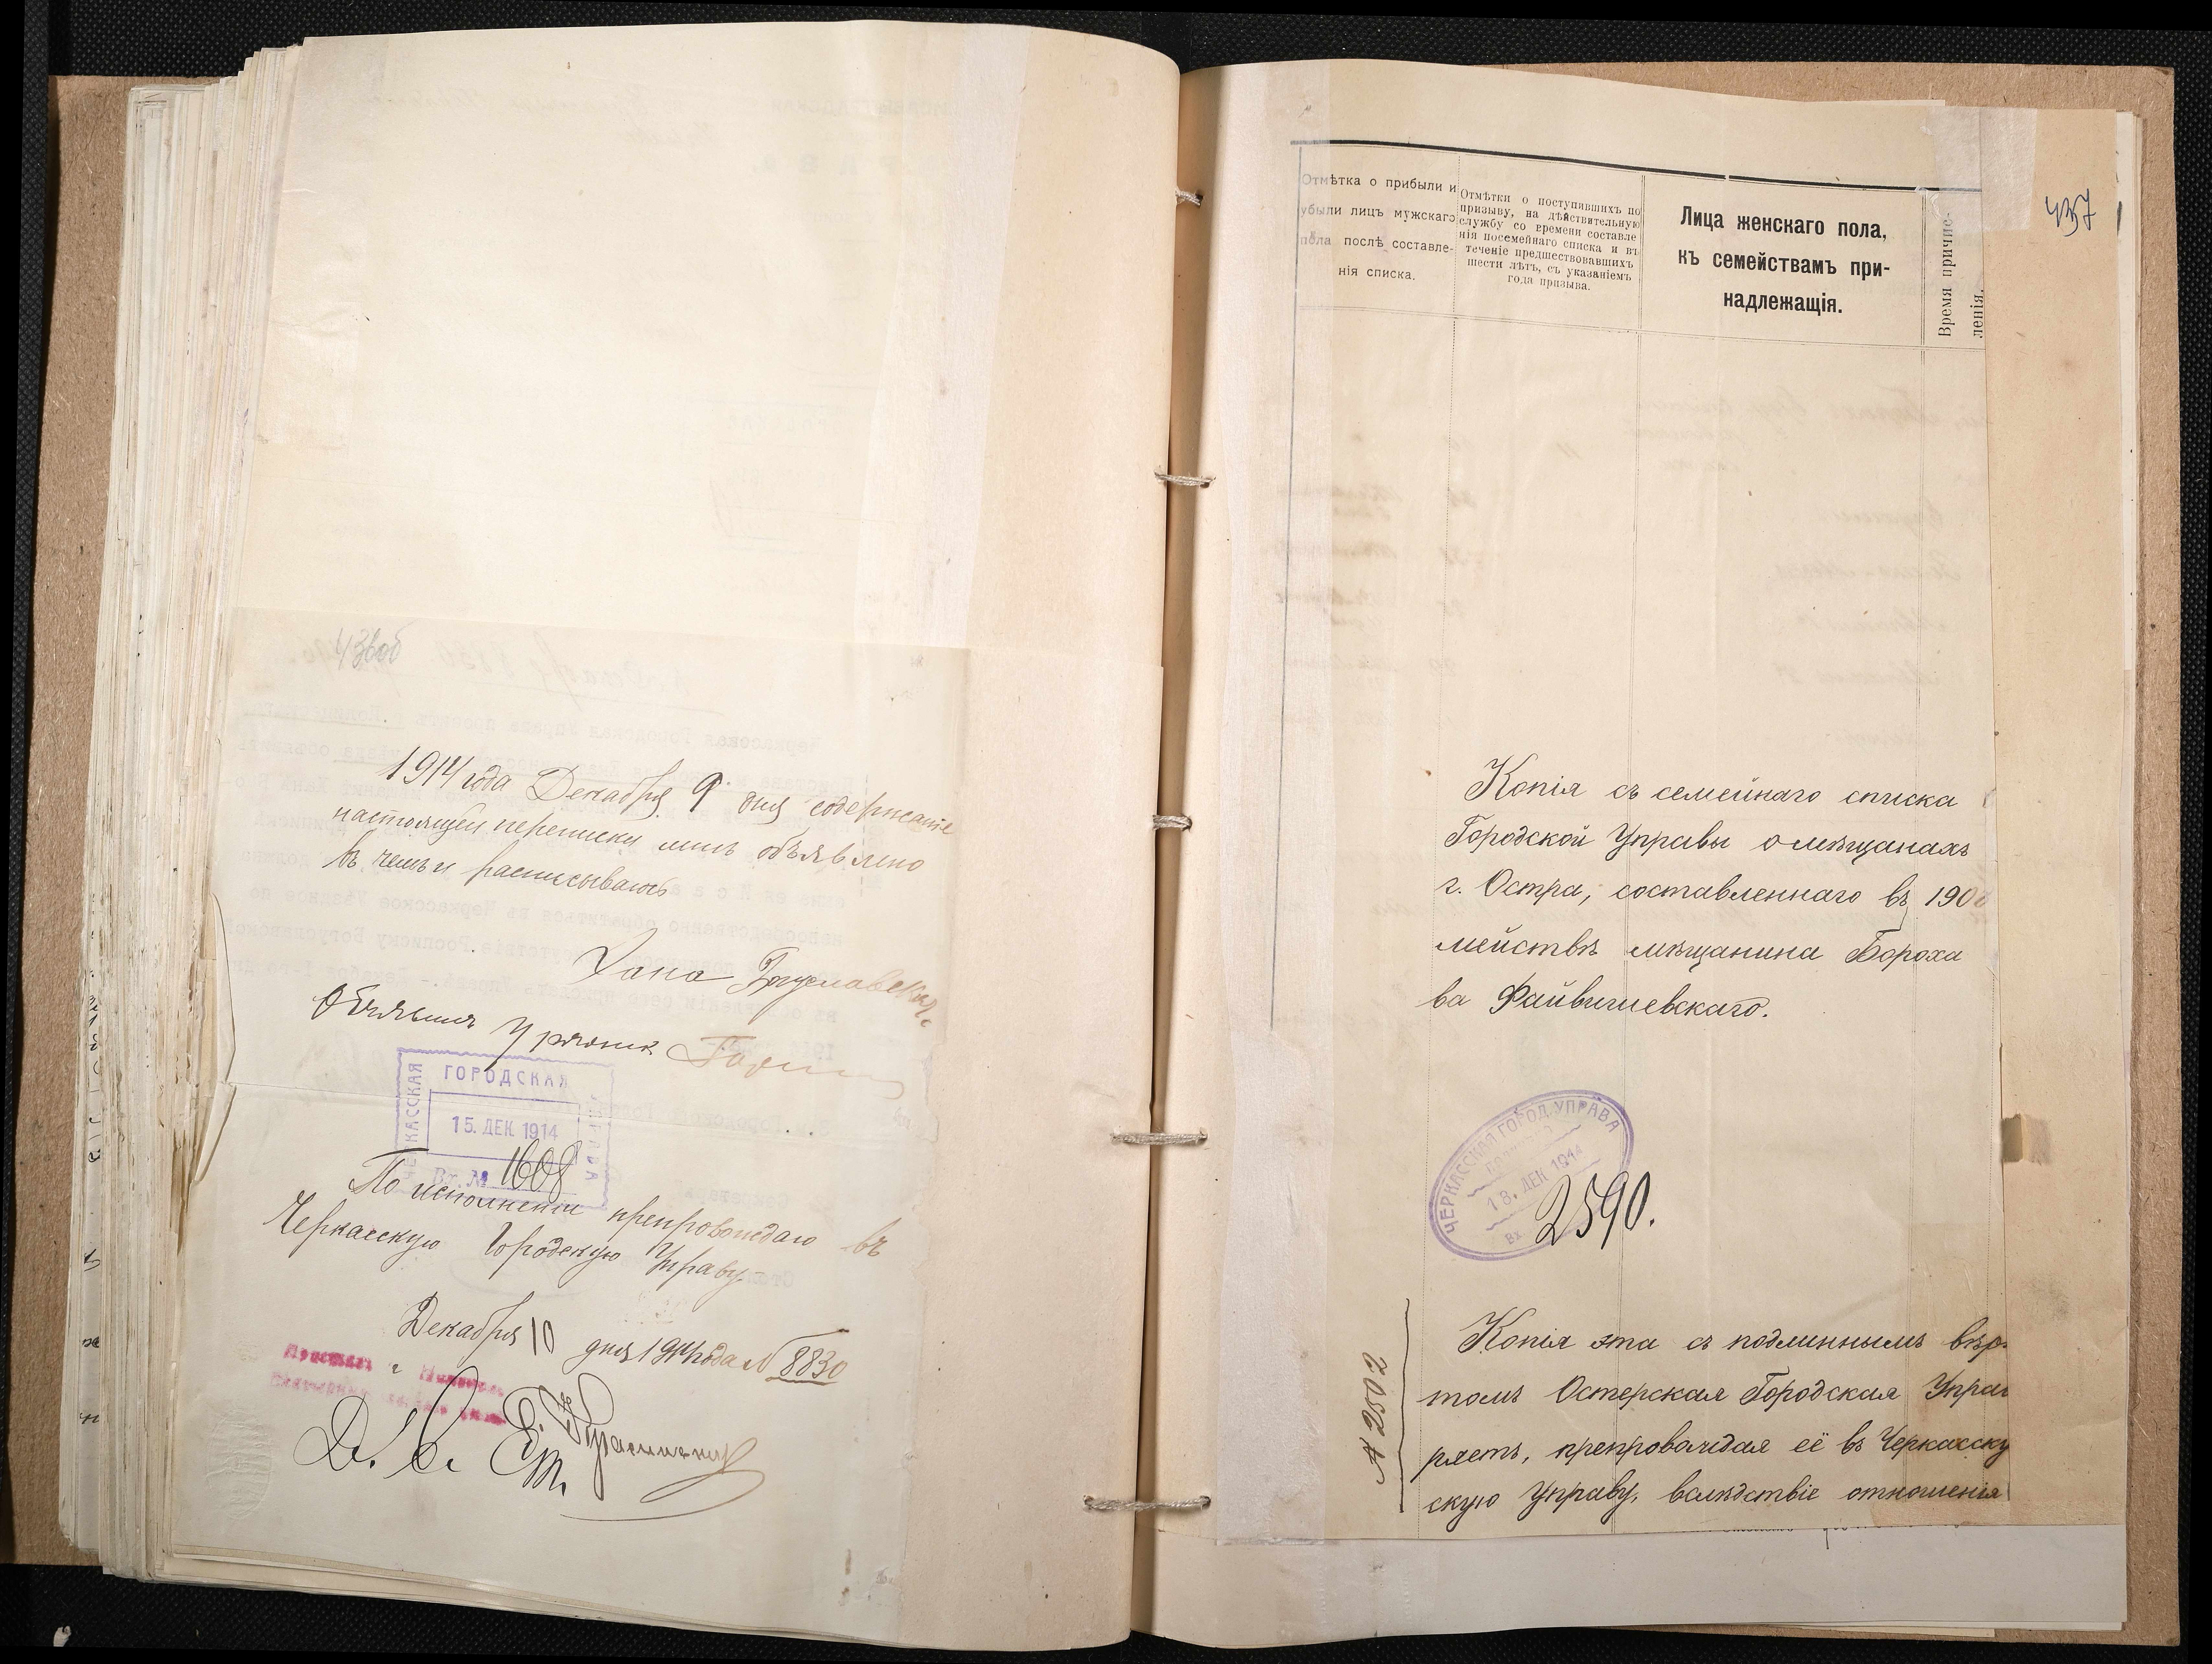 43воб
1914 года Декабря 9 дня содержаніе
настоящей переписки мнѣ объявлено
въ чемъ и расписываюсь
Хана Богуславская
Объявилъ Урядник
ЧЕРКАССКАЯ ГОРОДСКАЯ УПРАВА
15. ДЕК. 1914
Вх. № 1608
По исполненіи препровождаю въ
Черкасскую Городскую Управу
Декабря 10 дня 1914 года № 8830
437
Отмѣтка о прибыли и
убыли лицъ мужскаго
пола послѣ составле-
нія списка.
Отмѣтки о поступившихъ по
призыву, на дѣйствительную
службу со времени составле
нія посемейнаго списка и въ
теченіе предшествовавшихъ
шести лѣтъ, съ указаніемъ
года призыва.
Лица женскаго пола,
къ семействамъ при-
надлежащія.
Время причис-
ленія.
Копія съ семейнаго списка
Городской Управы о мѣщанахъ
г. Остра, составленнаго въ 190
мействѣ мѣщанина Бороха
ва Файвишевскаго.
ЧЕРКАССКАЯ ГОРОД. УПРАВА
18. ДЕК 1914
Вх 2590.
№ 2502
Копія эта съ подлиннымъ вѣр
томъ Остерская Городская Управ
ряетъ, препровождая её въ Черкасску
скую Управу, вслѣдствіе отношенія